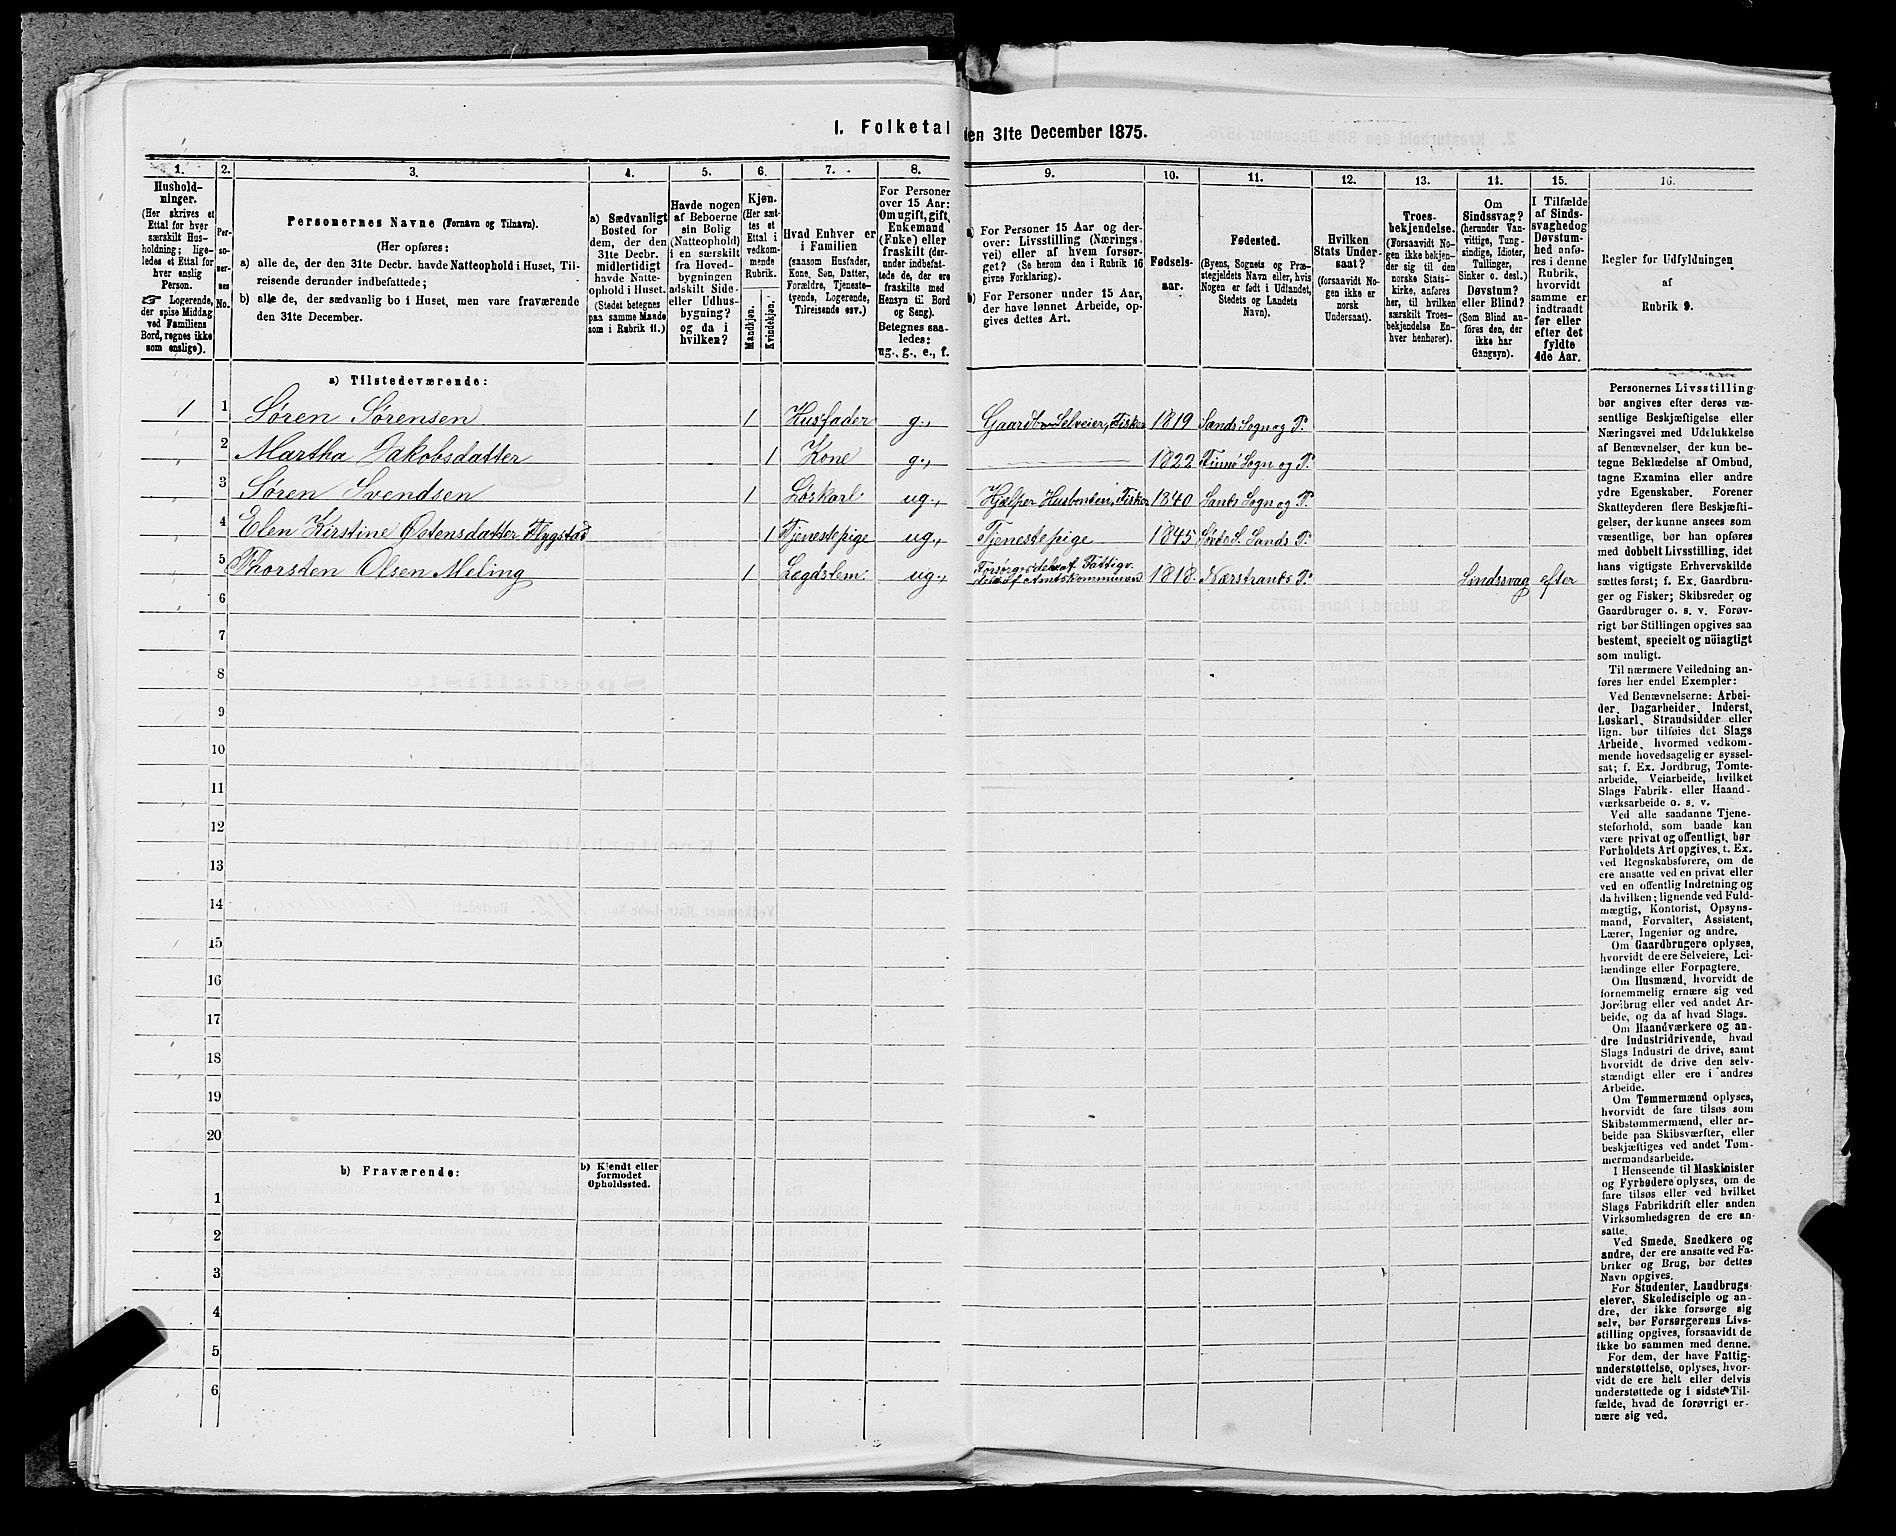 1. Folketal den 31te December 1875.
1. 2. 3. 4. 5. 6. 7. 8. 9. 10. 11. 12. 13. 14. 15. 16.
Hushold-
ninger.
(Her skrives et
Ettal for hver
særskilt Hus-
holdning; lige-
ledes et Ettal for
hver enslig
Person.
☞ Logerende,
der spise Middag
ved Familiens
Bord, regnes ikke
som enslige).
Per-
so-
ner-
nes
No.
Personernes Navne (Fornavn og Tilnavn).
(Her opføres:
a) alle de, der den 31te Decbr. havde Natteophold i Huset, Til-
reisende derunder indbefattede;
b) alle de, der sædvanlig bo i Huset, men vare fraværende
den 31te December.
a) Sædvanligt
Bosted for
dem, der den
31te Decbr.
midlertidigt
havde Natte-
ophold i Huset.
(Stedet betegnes
paa samme Maade
som i Rubrik 11.)
Havde nogen
af Beboerne
sin Bolig
(Natteophold)
i en særskilt
fra Hoved-
bygningen
adskilt Side-
eller Udhus-
bygning?
og da i
hvilken?
Kjøn.
(Her sæt-
tes et
Ettal i
vedkom-
mende
Rubrik.
Mandkjøn.
Kvindekjøn.
Hvad Enhver er
i Familien
(saasom Husfader,
Kone, Søn, Datter,
Forældre, Tjeneste-
tyende, Logerende,
Tilreisende osv.)
For Personer
over 15 Aar:
Om ugift, gift,
Enkemand
(Enke) eller
fraskilt (der-
under indbefat-
tede de, der ere
fraskilte med
Hensyn til Bord
og Seng).
Betegnes saa-
ledes:
ug., g., e., f.
a) For Personer 15 Aar og der-
over: Livsstilling (Nærings-
vei) eller af hvem forsør-
get? (Se herom den i Rubrik 16
givne Forklaring.)
b) For Personer under 15 Aar,
der have lønnet Arbeide, op-
gives dettes Art.
Fødsels-
aar.
Fødested.
(Byens, Sognets og Præ-
stegjeldets Navn eller, hvis
Nogen er født i Udlandet,
Stedets og Landets
Navn).
Hvilken
Stats Under-
saat?
(forsaavidt No-
gen ikke er
norsk
Undersaat).
Troes-
bekjendelse.
(Forsaavidt No-
gen ikke bekjen-
der sig til den
norske Stats-
kirke, anføres
her, til hvilken
særskilt Troes-
bekjendelse En-
hver henhører).
Om
Sindssvag?
(herunder Van-
vittige, Tung-
sindige, Idioter,
Tullinger,
Sinker o. desl.)
Døvstum?
eller Blind?
(Som Blind an-
føres den, der
ikke har
Gangsyn).
I Tilfælde
af Sinds-
svaghed og
Døvstum-
hed anfø-
res i denne
Rubrik,
hvorvidt
samme er
indtraadt
før eller
efter det
fyldte
4de Aar.
Regler for Udfyldningen
af
Rubrik 9.
a) Tilstedeværende:
1 1 Søren Sørensen 1 Husfader g., Gaardbr. Selveier, Fisker 1819 Sands Sogn og P.
2 Martha Jakobsdatter 1 Kone g., 1822 Sogn og P.
3 Søren Svendsen 1 Løskarl ug., Hjælper Husbonden, Fisker 1840 Sands Sogn og P.
4 Elen Kirstine Østensdatter Flygstad 1 Tjenestepige ug., Tjenestepige 1845 S. Sands P.
5 Thorsten Olsen Meling 1 Lægdslem ug., Amtskommunen 1818 Nærstrands P. Sindssvag efter
6
7
8
9
10
11
12
13
14
15
16
17
18
19
20
b) Fraværende:
b) Kjendt eller
formodet
Opholdssted.
1
2
3
4
5
6
Personernes Livsstilling
bør angives efter deres væ-
sentlige Beskjæftigelse eller
Næringsvei med Udelukkelse
af Benævnelser, der kun be-
tegne Beklædelse af Ombud,
tagne Examina eller andre
ydre Egenskaber. Forener
Skatteyderen flere Beskjæfti-
gelser, der kunne ansees som
væsentlige, bør han opføres
med dobbelt Livsstilling, idet
hans vigtigste Erhvervskilde
sættes først; f. Ex. Gaardbru-
ger og Fisker; Skibsreder og
Gaardbruger o. s. v. Forøv-
rigt bør Stillingen opgives saa
bestemt, specielt og nöiagtigt
som muligt.
Til nærmere Veiledning an-
føres her endel Exempler:
Ved Benævnelserne: Arbei-
der, Dagarbeider, Inderst,
Løskarl, Strandsidder eller
lign. bør tilføies det Slags
Arbeide, hvormed vedkom-
mende hovedsagelig er syssel-
sat; f. Ex. Jordbrug, Tomte-
arbeide, Veiarbeide, hvilket
Slags Fabrik- eller Haand-
værksarbeide o. s. v.
Ved alle saadanne Tjene-
steforhold, som baade kan
være privat og offentligt, bør
Forholdets Art opgives, t. Ex.
ved Regnskabsførere, om de
ere ansatte ved en privat eller
ved en offentlig Indretning og
da hvilken; lignende ved Fuld-
mægtig, Kontorist, Opsyns-
mand, Forvalter, Assistent,
Lærer, Ingeniør og andre.
Om Gaardbrugere oplyses,
hvorvidt de ere Selveiere, Lei-
lændinge eller Forpagtere.
Om Husmænd, hvorvidt de
fornemmelig ernære sig ved
Jordbrug eller ved andet Ar-
beide, og da af hvad Slags.
Om Haandværkere og an-
dre Industridrivende, hvad
Slags Industri de drive, samt
hvorvidt de drive den selv-
stændigt eller ere i andres
Arbeide.
Om Tømmermænd oplyses,
hvorvidt de fare tilsøs som
Skibstømmermænd, eller ar-
beide paa Skibsværfter, eller
beskjæftiges ved andet Tøm-
mermandsarbeide.
I Henseende til Maskinister
og Fyrbødere oplyses, om de
fare tilsøs eller ved hvilket
Slags Fabrikdrift eller anden
Virksomhedsgren de ere an-
satte.
Ved Smede, Snedkere og
andre, der ere ansatte ved Fa-
briker og Brug, bør dettes
Navn opgives.
For Studenter, Landbrugs-
elever, Skoledisciple og an-
dre, der ikke forsørge sig
selv, bør Forsørgerens Livs-
stilling opgives, forsaavidt de
ikke bo sammen med denne.
For dem, der have Fattig-
understøttelse, oplyses, hvor-
vidt de ere helt eller delvis
understøttede og i sidste Til-
fælde, hvad de forøvrigt er-
nære sig ved.